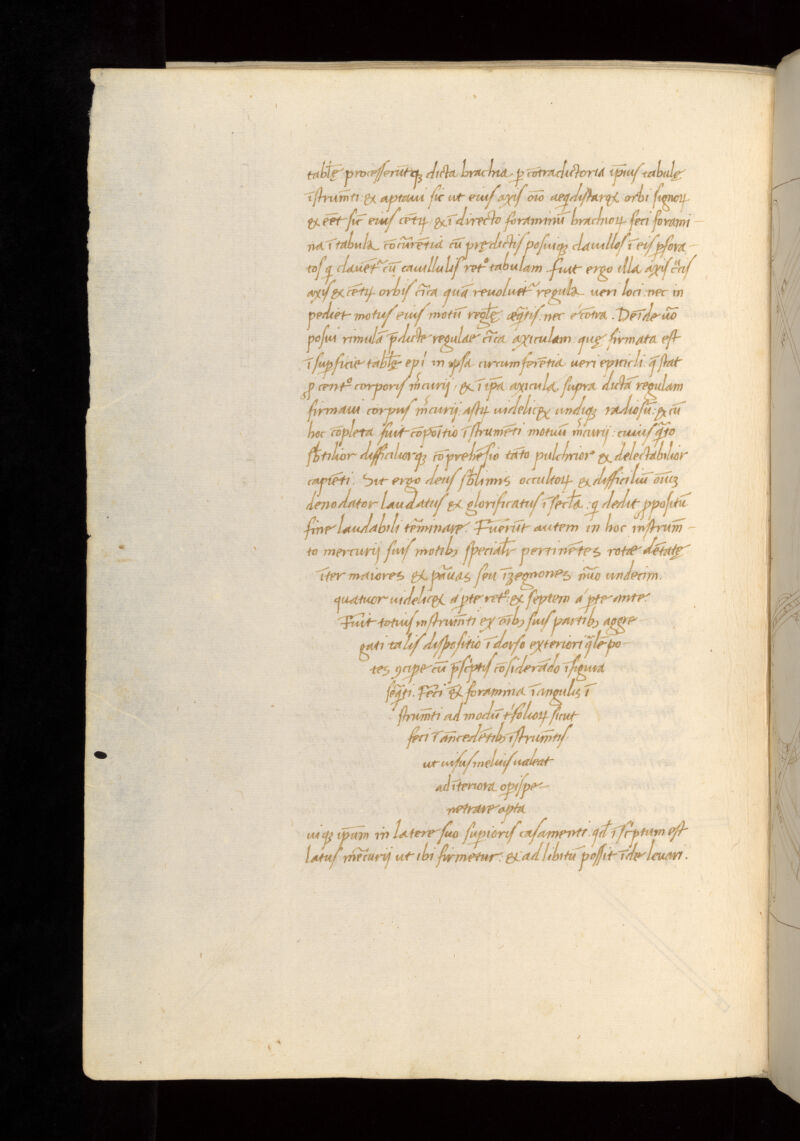 tabl̄ę processerūtqꝫ dicta brachia ꝑ cōtradictoria ip̄ius tabulę
īstrum̄ti ⁊ aptaui sic ut eius axis oīo aeq̄distarꝫ orbi signoꝝ
⁊ eēt sic eius cētꝝ ⁊ ī directo foraminū brachioꝝ feci forami
na ī tabula cōcurētia cū prędictis posuiqꝫ clauillos ī eis ꝑfora
tos q clauēt cū cauillulis retº tabulam. fuit ergo illa axis
axis ⁊ cētꝝ orbis circa quā reuoluet regula ueri loci nec in
pediet motus eius motū regl̄ę nec ecōtra. Deīde uō
posui rimulā p̄dictę regulae cīca axiculam quę firmata est
ī suꝑficie tabl̄ę epi in ipsa circumferētia ueri epicicli q̄ stat
ꝓ cent̊ corporis m̄curij: ⁊ ī ip̄a axicula supra dictā regulam
firmaui corpus m̄curij uidelicꝫ undiqꝫ radiosū: ⁊ cū
hoc cōpleta fuit cōpōitio īstrumēti motuū m̄curij: cuius q̄to
sb̄tilior difficiliorqꝫ cōprehēsio tāto pulchrior ⁊ delectabilior
capiēti. Sit ergo deus sb̄limis occultoꝝ ⁊ difficiliū oīuꝫ
denodator laudatus ⁊ glorificatus ī secl̄a: q dedit ꝓpositū
fine laudabili tēminare. Fuerūt autem in hoc instrum̄
to mercurij suis motibꝫ specialr̄ pertinētes rotae dētatę
īter maiores ⁊ pāuas seu nūo undecim.
quatuor uidelicꝫ a ꝑte retº ⁊ septem a ꝑte ante.
Fuit totius instrum̄ti ex oībꝫ suis partibꝫ aggre
gati talis dispositio ī dorso exteriori q̄lē po
tes ꝯcipe cū p̄scptis cōsiderādo ī figura
seq̄ti. Feci ⁊ foramina ī angulis ī
strum̄ti ad modū t'folioꝝ sicut
feci ī ancedētibꝫ īstrumētis
ut uisus melius ualeat
ad īteriora oꝑis pe
netrare apta
uiqꝫ ip̄am in latere suo suꝑioris casamenti qd̄ īscptum est
latus mēcurij ut ibi firmetur: ⁊ ad libitū possit īde leuari.